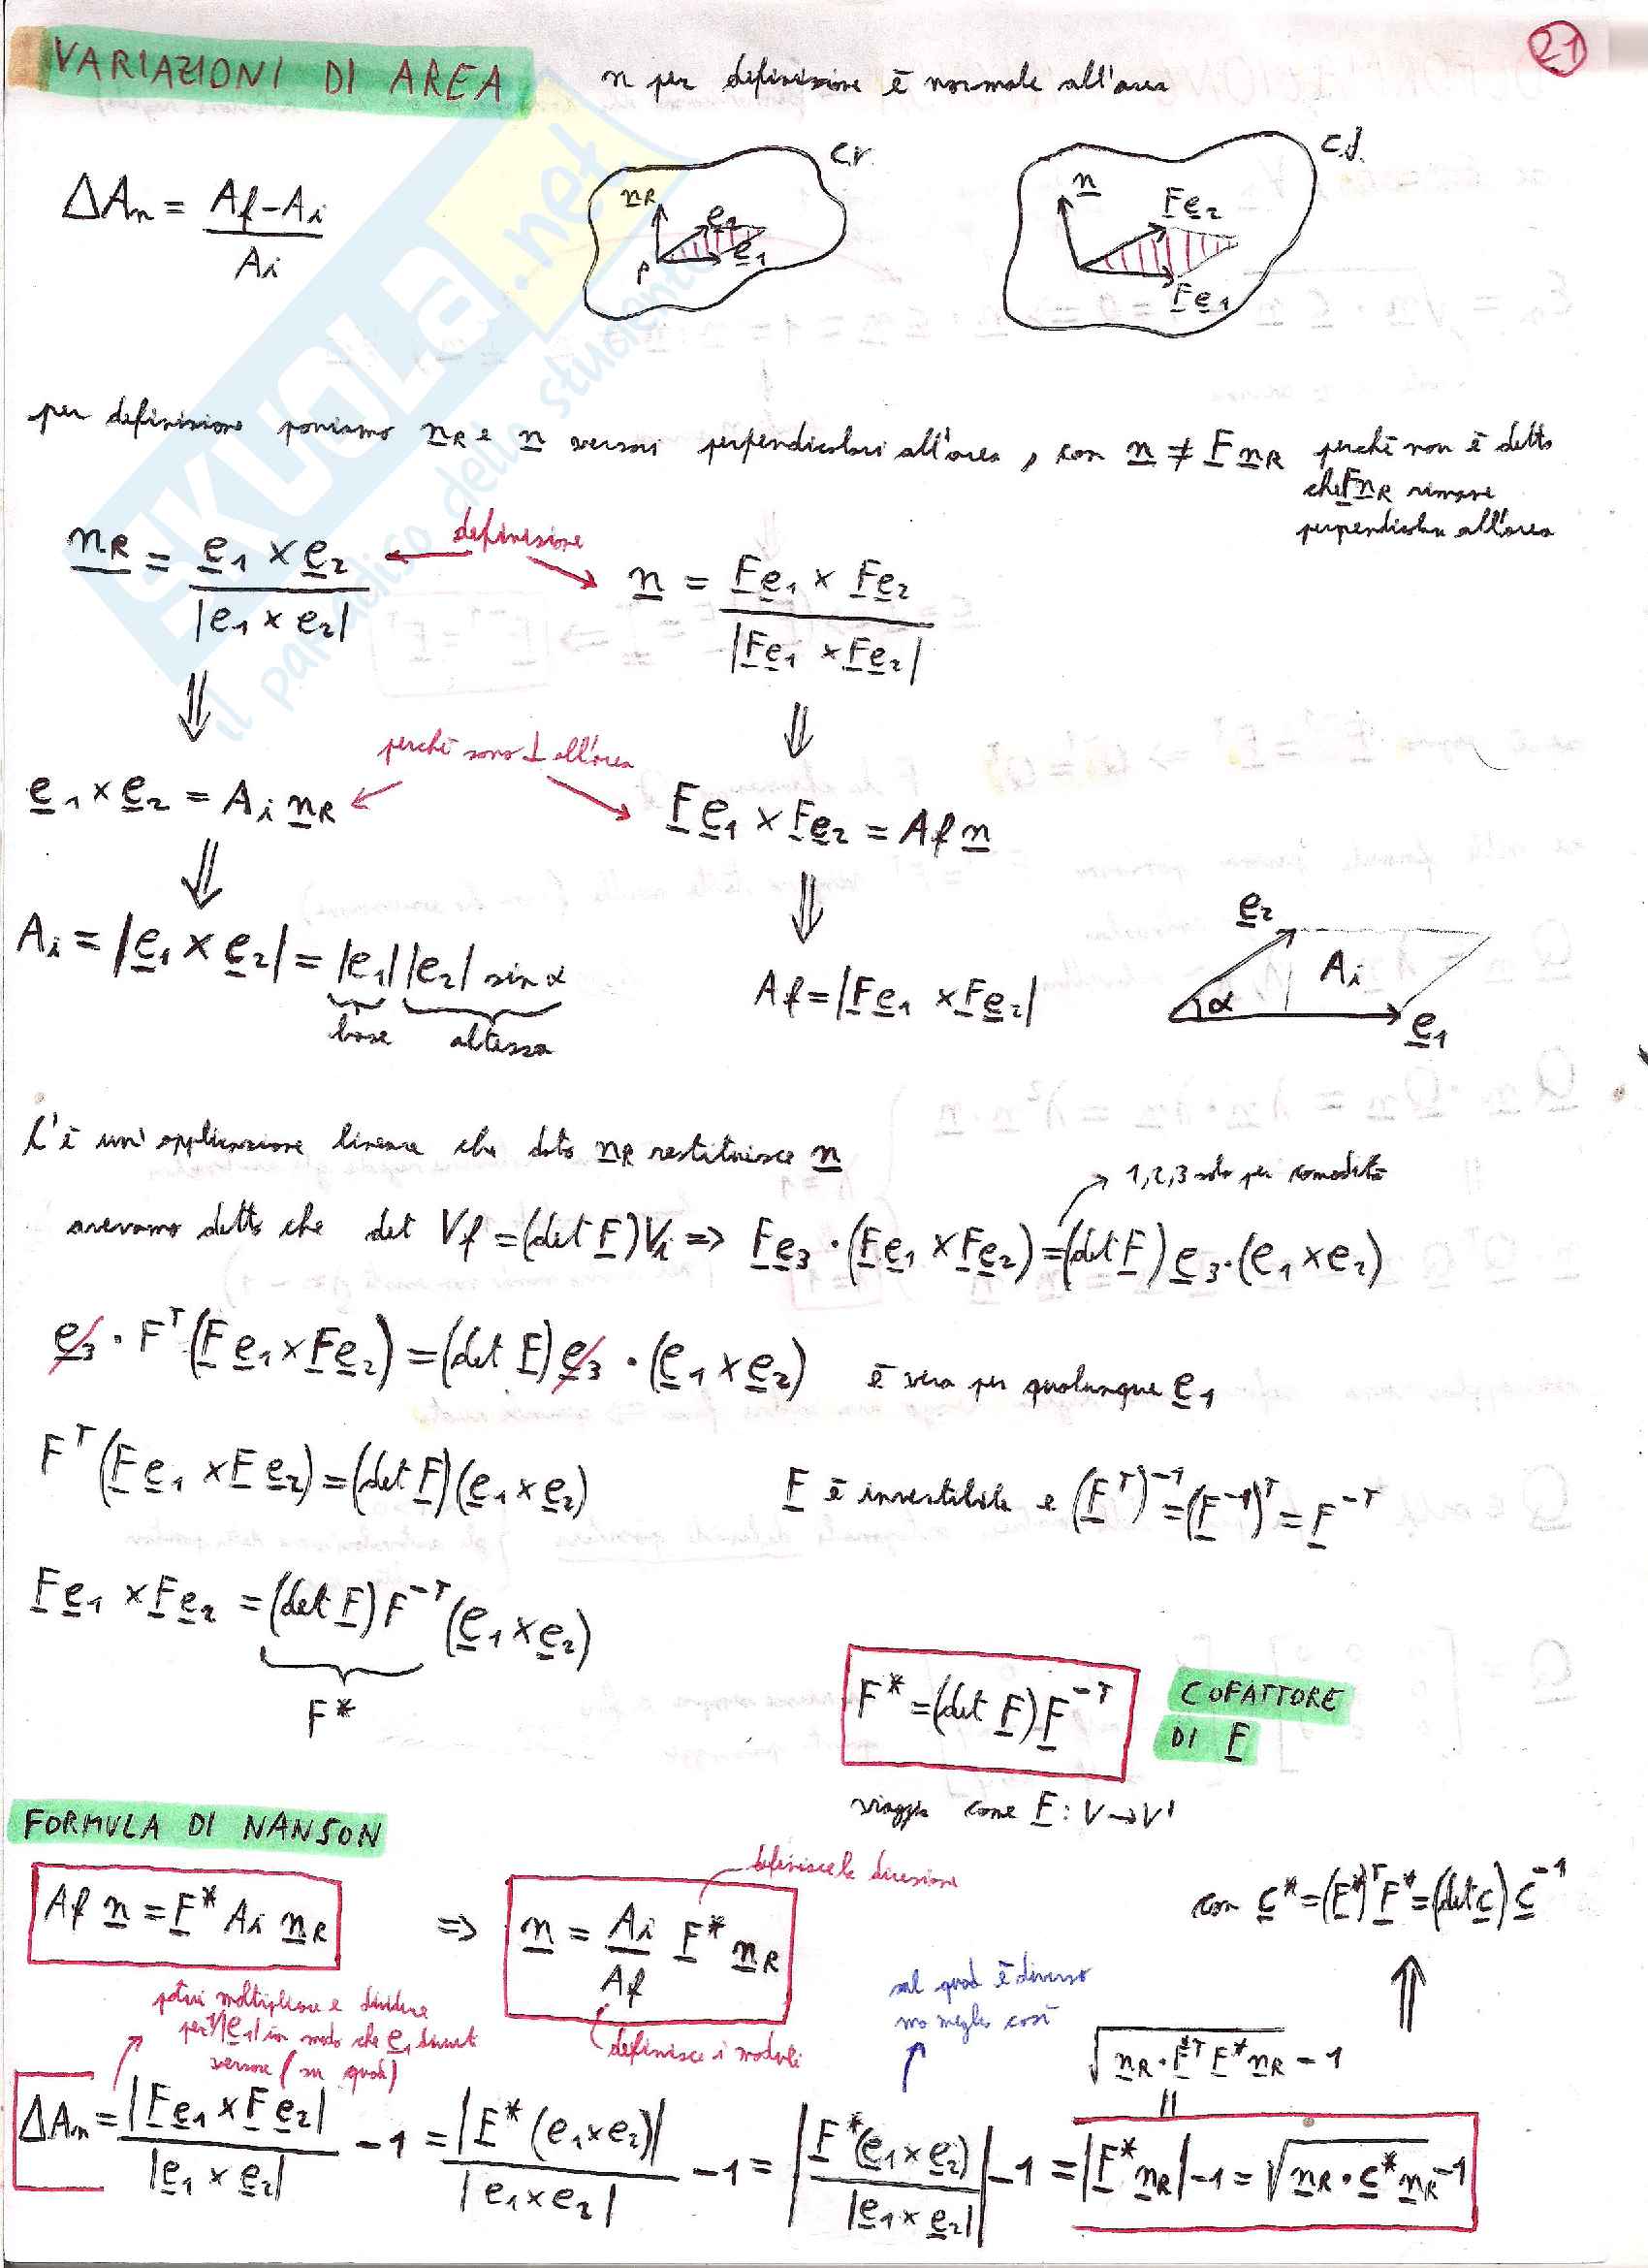 21
VARIAZIONI DI AREA
n per definizione è normale all'area
ΔAn = (Af - Ai) / Ai
c.r.
nR
e2
e1
P
c.f.
n
Fe2
Fe1
per definizione poniamo nR e n versori perpendicolari all'area, con n ≠ F nR perchè non è detto
che FnR rimane
perpendicolare all'area
nR = e1 × e2 / |e1 × e2|
definizione
n = Fe1 × Fe2 / |Fe1 × Fe2|
⇓ ⇓
perchè sono ⊥ all'area
e1 × e2 = Ai nR
Fe1 × Fe2 = Af n
⇓ ⇓
Ai = |e1 × e2| = |e1| |e2| sin α
base altezza
Af = |Fe1 × Fe2|
e2
Ai
α
e1
C'è un'applicazione lineare che dato nR restituisce n
1,2,3 solo per comodità
avevamo detto che det Vf = (det F)Vi => Fe3 · (Fe1 × Fe2) = (det F) e3 · (e1 × e2)
e3 · F^T (Fe1 × Fe2) = (det F) e3 · (e1 × e2) è vera per qualunque e1
F^T (Fe1 × Fe2) = (det F)(e1 × e2)
F è invertibile e (F^T)^-1 = (F^-1)^T = F^-T
Fe1 × Fe2 = (det F) F^-T (e1 × e2)
F*
F* = (det F) F^-T
COFATTORE
DI F
viaggia come F: V → V'
FORMULA DI NANSON
Af n = F* Ai nR
=> n = Ai/Af F* nR
definisce la direzione
definisce i moduli
con C* = (F*)^T F* = (det C) C^-1
⇑
potrei moltiplicare e dividere
per 1/|e1| in modo che e1 diventi
versore (su quad)
sul quad è diverso
ma meglio così
√(nR · F*^T F* nR) - 1
ΔAn = |Fe1 × Fe2| / |e1 × e2| - 1 = |F* (e1 × e2)| / |e1 × e2| - 1 = |F*(e1 × e2) / |e1 × e2|| - 1 = |F* nR| - 1 = √(nR · C* nR) - 1
SKUOLA.net
il paradiso dello studente